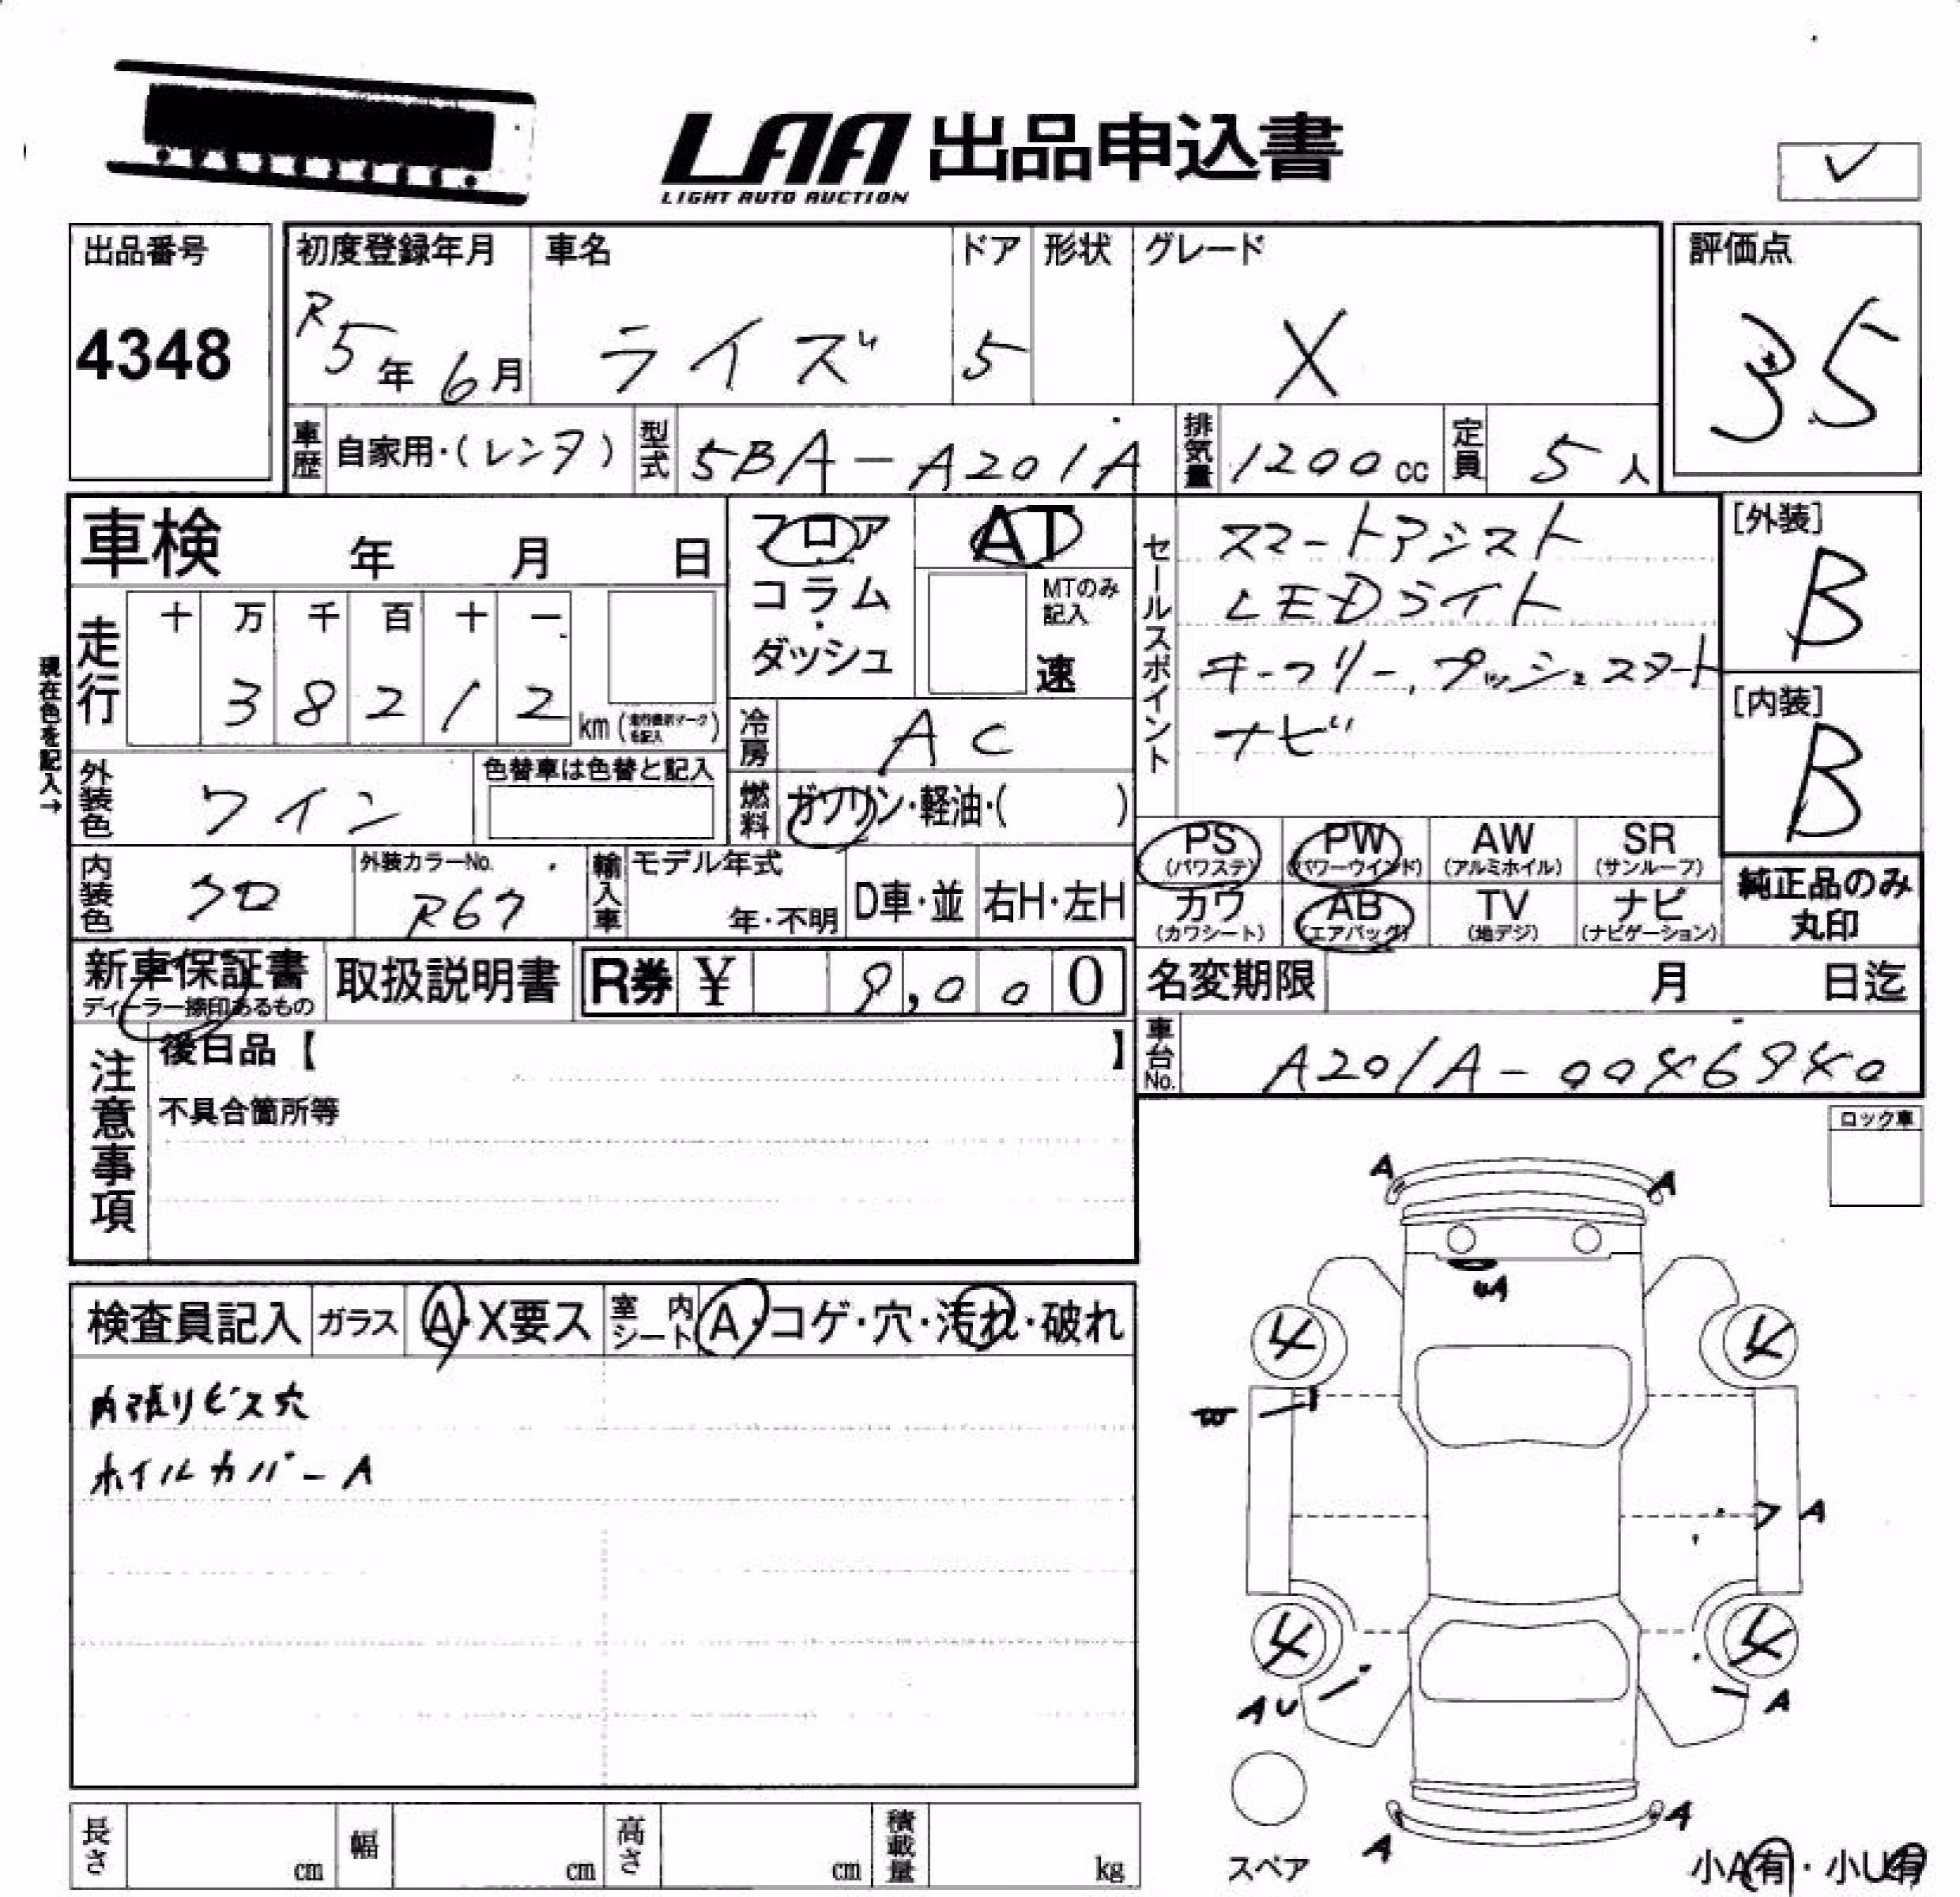 LAA 出品申込書
LIGHT AUTO AUCTION
出品番号
4348
初度登録年月
R5年6月
車名
ライズ
ドア
5
形状
グレード
X
評価点
35
車歴
自家用・(レンタ)
型式
5BA-A201A
排気量
1200cc
定員
5人
車検 年 月 日
走行
十 万 千 百 十 一
3 8 2 1 2
km
現在色を記入→
外装色
ワイン
色替車は色替と記入
内装色
クロ
外装カラーNo.
R67
フロア・コラム・ダッシュ
AT
MTのみ記入
速
冷房
AC
燃料
ガソリン・軽油・( )
輸入車
モデル年式
年・不明
D車・並
右H・左H
セールスポイント
スマートアシスト
LEDライト
キーフリー, プッシュスタート
ナビ
[外装]
B
[内装]
B
PS (パワステ)
PW (パワーウインド)
AW (アルミホイル)
SR (サンルーフ)
カワ (カワシート)
AB (エアバッグ)
TV (地デジ)
ナビ (ナビゲーション)
純正品のみ丸印
新車保証書
ディーラー捺印あるもの
取扱説明書
R券 ¥ 9,000
名変期限 月 日迄
車台No.
A201A-0046940
注意事項
後日品【 】
不具合箇所等
ロック車
検査員記入
ガラス
A・X要ス
室内シート
A・コゲ・穴・汚れ・破れ
内張リビス穴
ホイルカバーA
A
A
UA
4
4
W
A
4
4
AU
A
A
A
スペア
小A有・小U有
長さ cm
幅 cm
高さ cm
積載量 kg